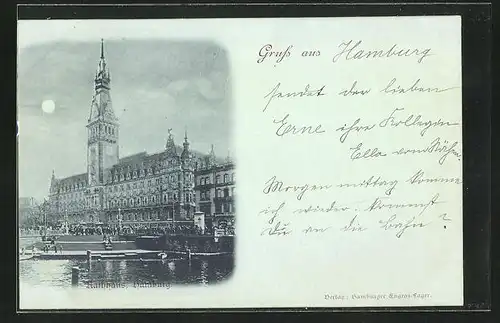 Gruß aus Hamburg
sendet der lieben
Erne ihre Kollegin
Ella vom
Morgen mittag komme
ich wieder. kommst
Du an die Bahn?
Rathhaus, Hamburg
Verlag: Hamburger Engros-Lager.